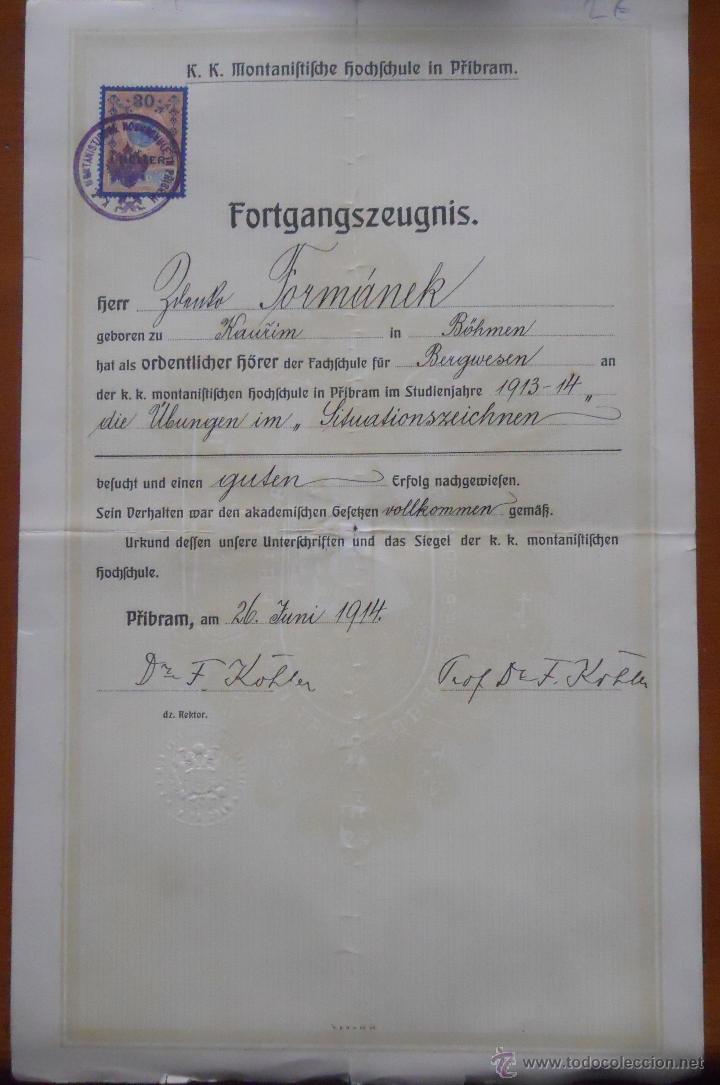 2 €
K. K. Montanistische Hochschule in Příbram.
30
HELLER
K. K. MONTANISTISCHE HOCHSCHULE IN PŘIBRAM
Fortgangszeugnis.
Herr Zdenko Formánek
geboren zu Kauřim in Böhmen
hat als ordentlicher Hörer der Fachschule für Bergwesen an
der k. k. montanistischen Hochschule in Příbram im Studienjahre 1913-14 „
die Übungen im „ Situationszeichnen
besucht und einen guten Erfolg nachgewiesen.
Sein Verhalten war den akademischen Gesetzen vollkommen gemäß.
Urkund dessen unsere Unterschriften und das Siegel der k. k. montanistischen
Hochschule.
Příbram, am 26. Juni 1914.
Dr F. Köhler Prof Dr F. Köhler
dz. Rektor.
todocoleccion
© www.todocoleccion.net